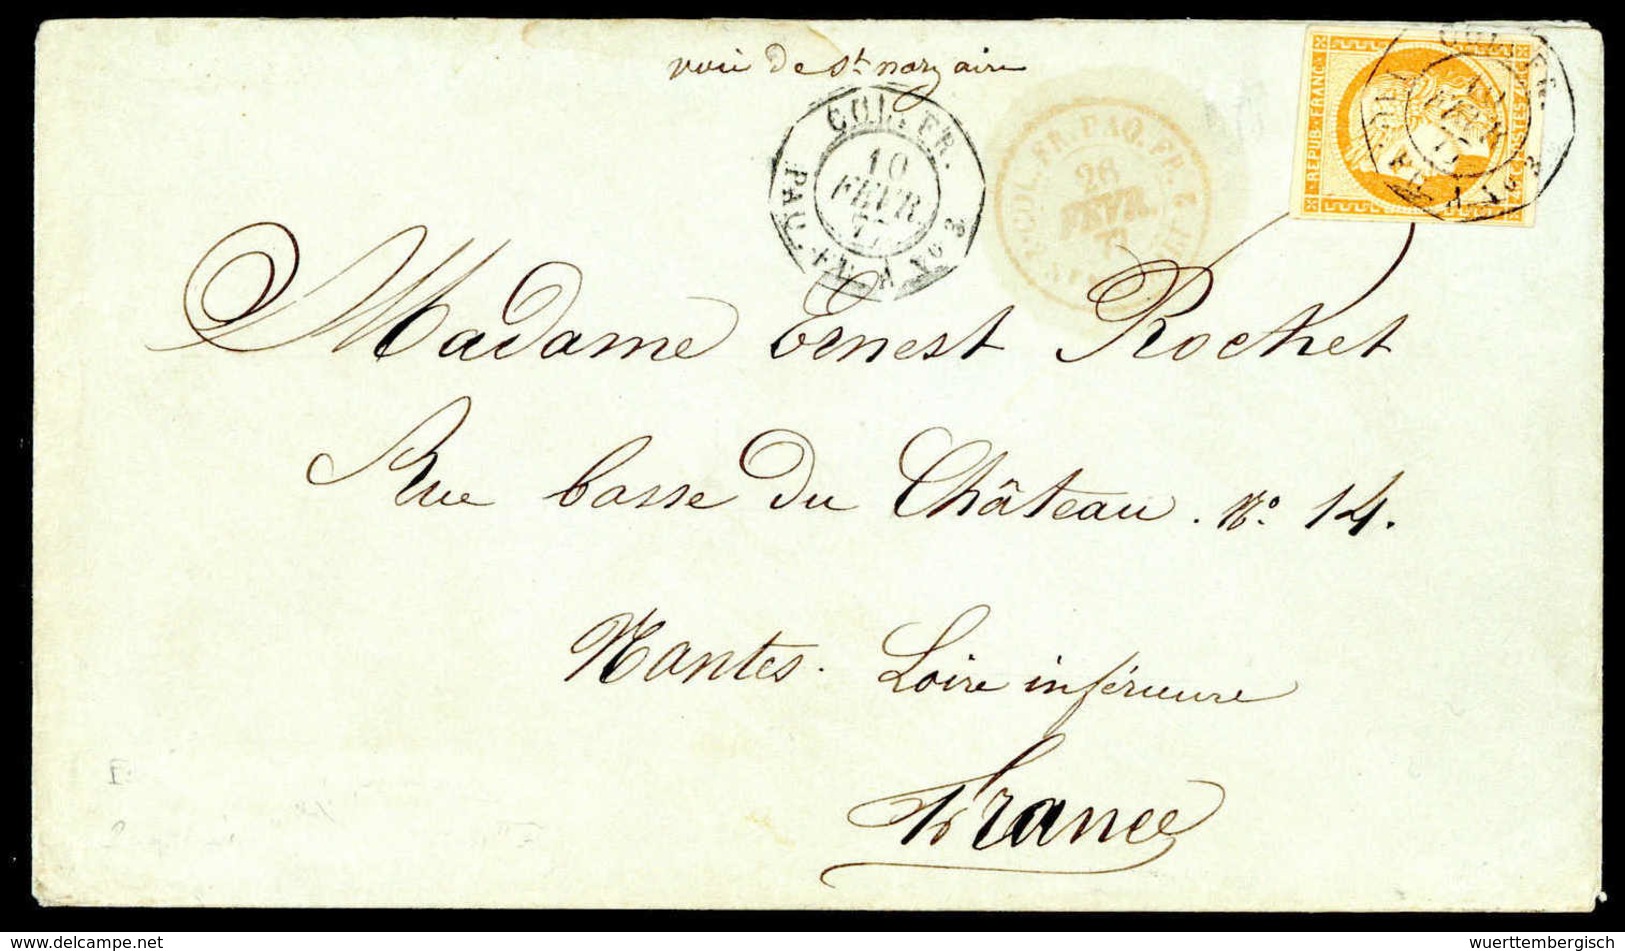 voie de St nazaire
COL. FR.
10
FEVR.
77
PAQ. FR. A No 3
COL. FR. PAQ. FR.
26
FEVR.
REPUB·FRANC
POSTES
COL. FR.
FEVR.
Madame Ernest Rochet
Rue basse du Château. No. 14.
Nantes. Loire inférieure
France
www.wuerttembergisch